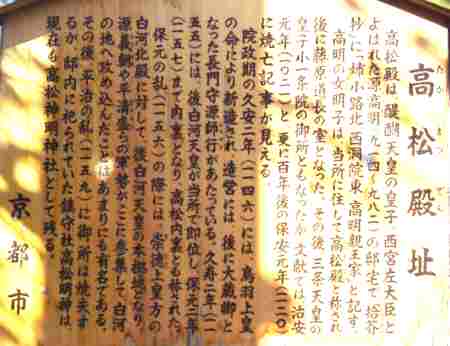 高松殿址
たかまつでん
高松殿は、醍醐天皇の皇子、西宮左大臣と
よばれた源高明(九一四〜九八二)の邸宅で、拾芥
抄に「姉小路北、西洞院東、高明親王家」と記す。
高明の女明子は、当所に住して高松殿と称され
後に藤原道長の室となった。その後、三条天皇の
皇子小一条院の御所ともなったが、文献では治安
元年(一〇二一)と更に百年後の保安元年(一一二〇)
に焼亡記事が見える。
院政期の久安二年(一一四六)には、鳥羽上皇
の命により新造され、造営には、後に大蔵卿と
なった長門守源師行があたっている。久寿二年(一一
五五)には、後白河天皇が当所で即位し、保元二年
(一一五七)まで内裏となり、高松内裏とも称された。
保元の乱(一一五六)の際には、崇徳上皇方の
白河北殿に対して、後白河天皇の本拠地となり、
源義朝や平清盛らの軍勢がここに参集して、白河
の地へ攻め込んだことはあまりにも有名である。
その後、平治の乱(一一五九)に御所は焼失す
るが、邸内に祀られていた鎮守社高松明神は、
現在も高松神明神社として残る。
京都市